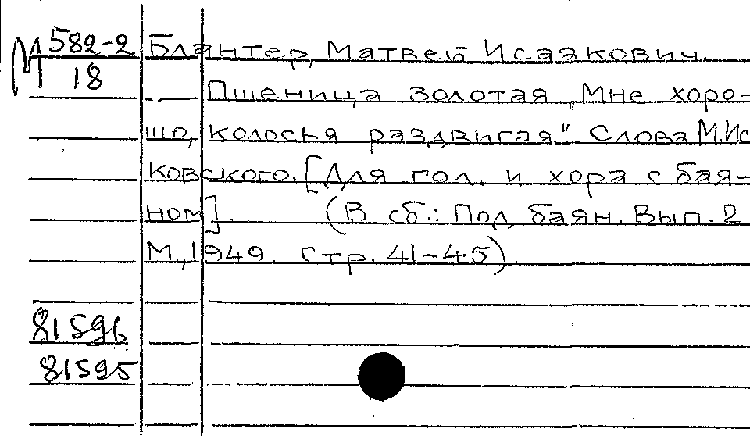 М 582-2 Блантер, Матвей Исаакович.
18
Пшеница золотая „Мне хоро-
шо, колосья раздвигая". Слова М.Ис
ковского. [Для гол. и хора с бая-
ном]. (В сб.: Под баян. Вып. 2
М., 1949. стр. 41-45)
81596
81595